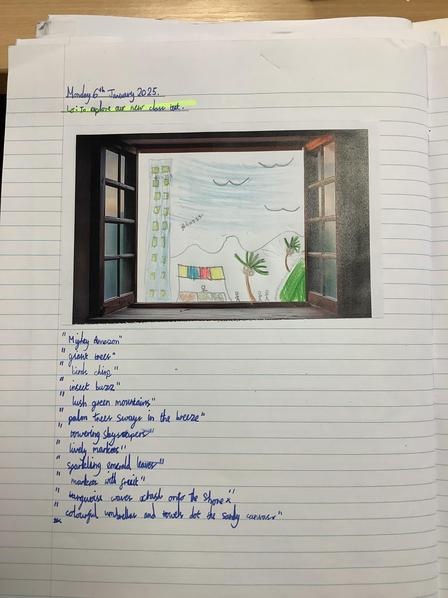 Monday 6th January 2025.
Lo: To explore our new class text.
"Mighty Amazon"
"giant trees"
"birds chirp"
"insect buzz"
"lush green mountains"
"palm trees sways in the breeze"
"towering skyscrapers"
"lively markets"
"sparkling emerald leaves"
"markets with fruit"
"turquoise waves crash onto the shore"
"colourful umbrellas and towels dot the sandy canvas"